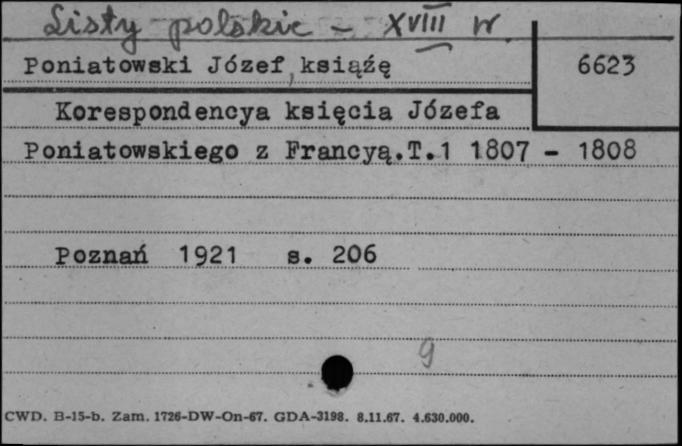 Listy polskie – XVIII w.
Poniatowski Józef, książę
6623
Korespondencya księcia Józefa
Poniatowskiego z Francyą.T.1 1807 – 1808
Poznań 1921 s. 206
9
CWD. B-15-b. Zam. 1726-DW-On-67. GDA-3198. 8.11.67. 4.630.000.